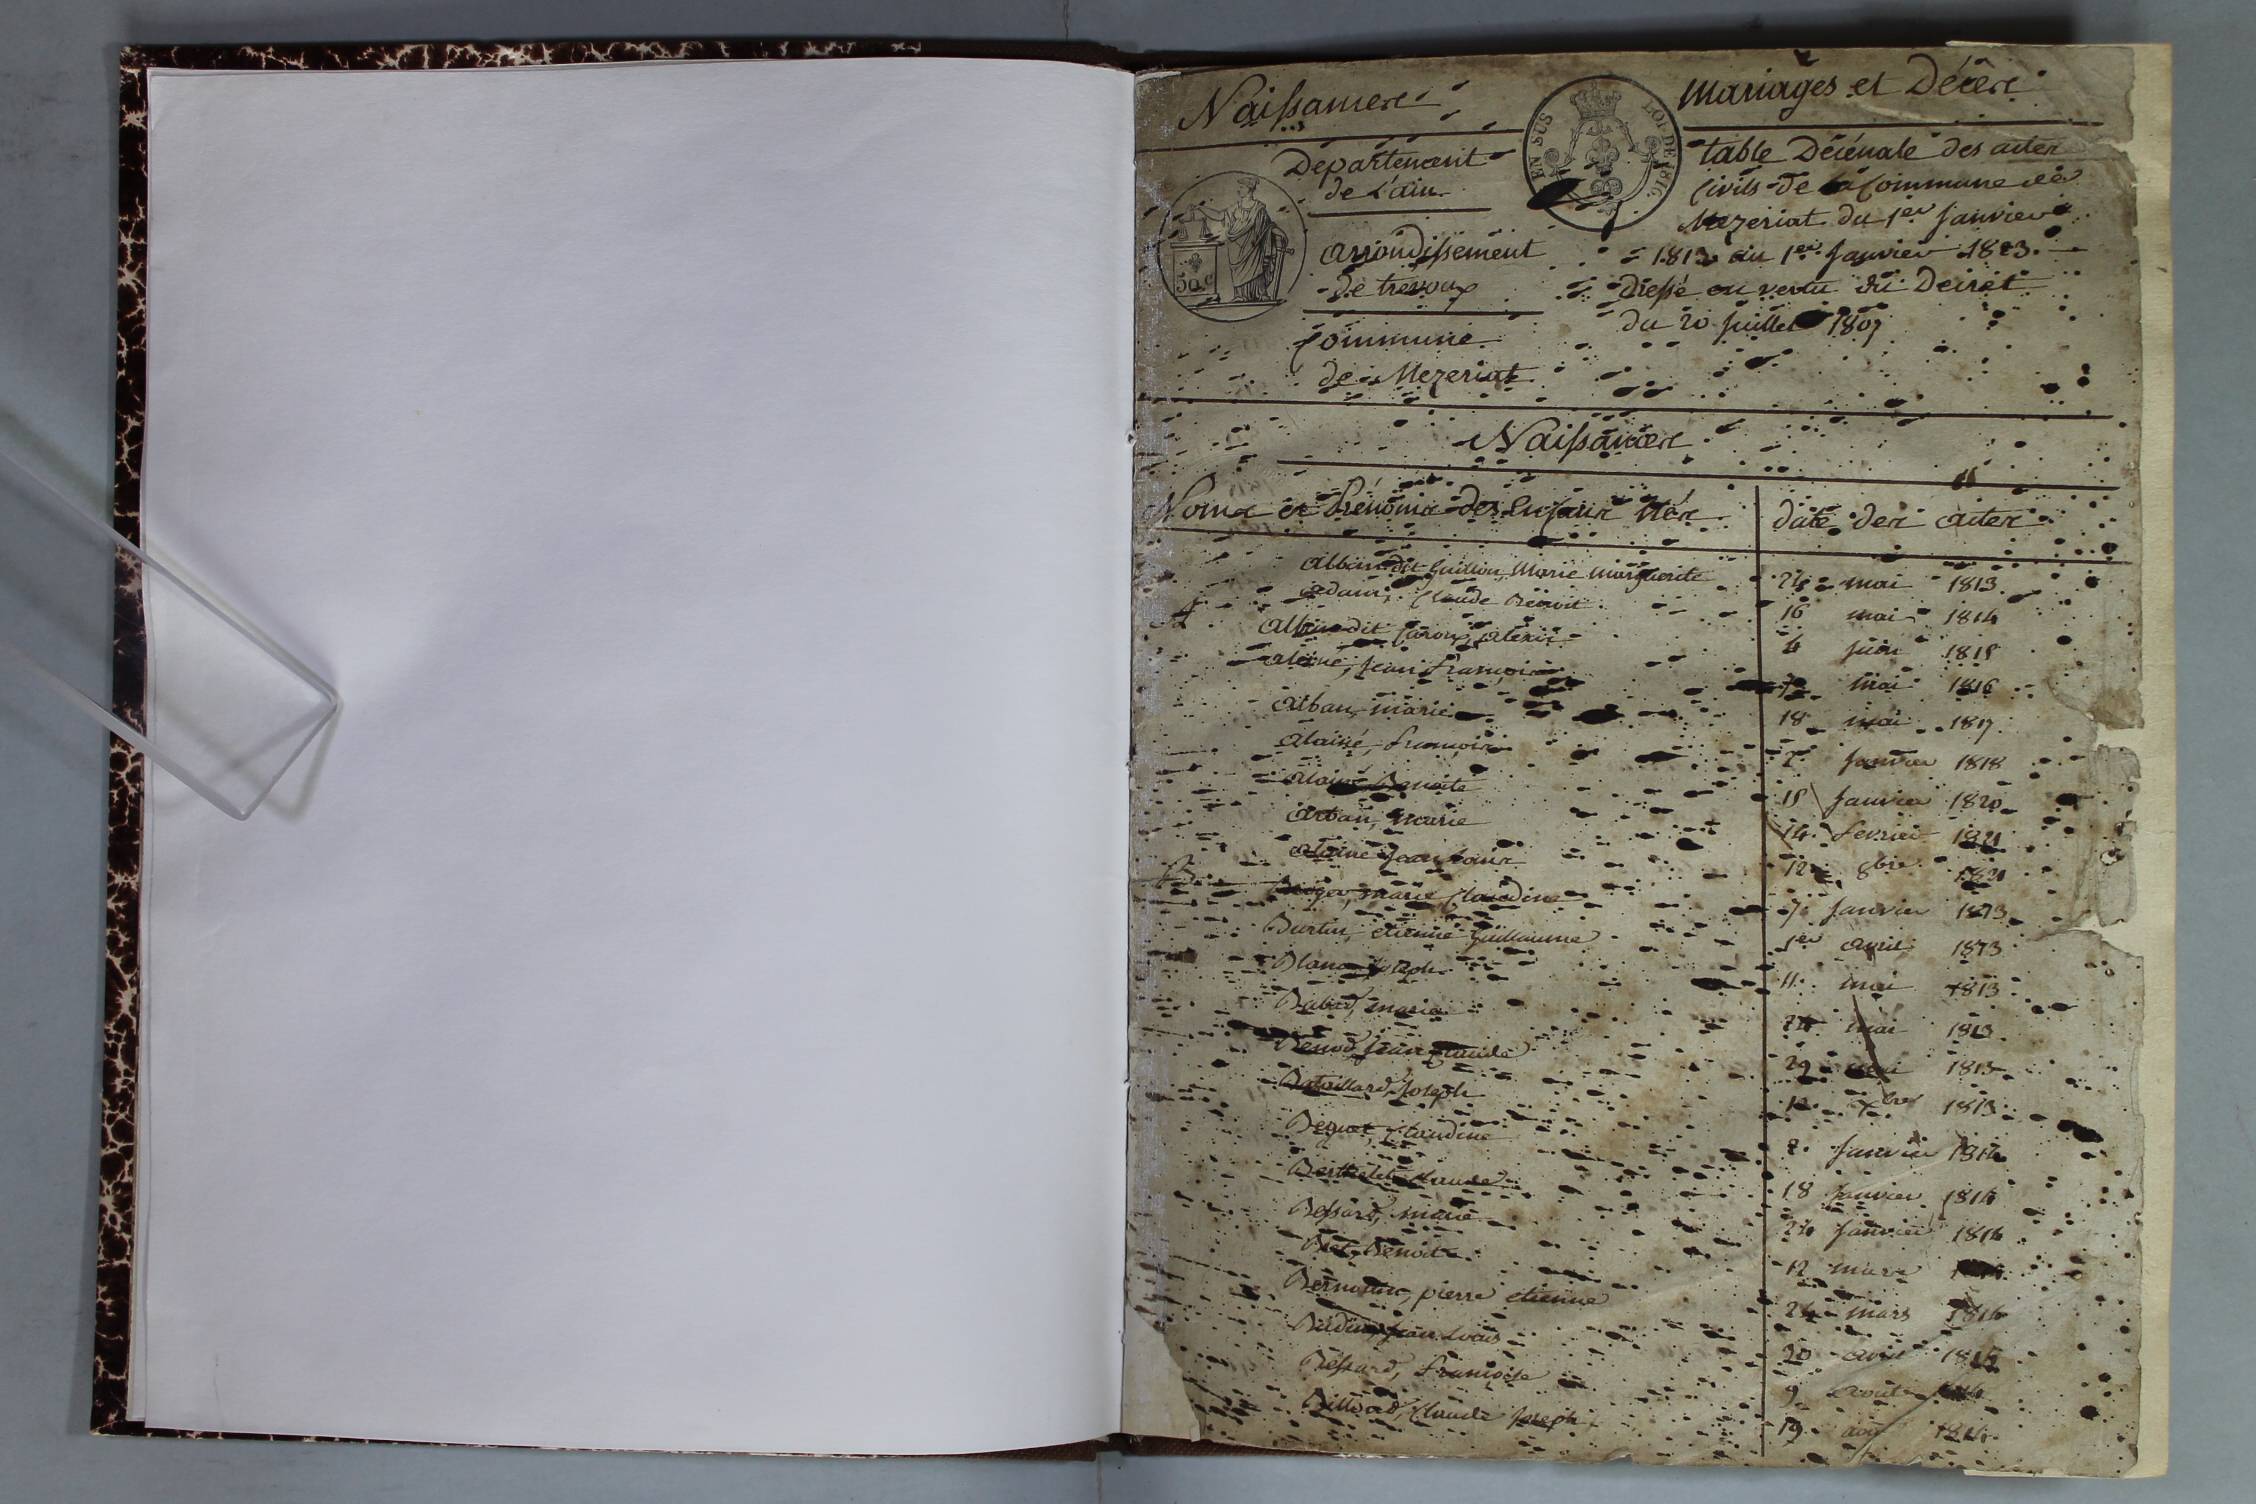 Naissances
Mariages et Décès
EN SUS
LOI DE 1816
Departement
de L'ain
50 c
arrondissement
de trévoux
Commune
de Mezeriat
table Décénale des actes
Civils de la Commune de
Mezeriat du 1er Janvier
1813 au 1er Janvier 1823.
Dressé en vertu du Décret
du 20 Juillet 1807
Naissances
Noms et Prénoms des Enfans Nés
date des actes
A
Alban dit Guillon, Marie Marguerite 24 mai 1813
adam, Claude Benoit 16 mai 1814
Alban dit alexis 4 juin 1815
alainé, Jean François mai 1816
Alban, marie 18 mai 1817
alainé, François 7 Janvier 1818
alainé Benoite 15 Janvier 1820
Alban, marie 14 fevrier 1821
alainé Jean Louis 12 8bre
B
marie Claudine 7 Janvier 1813
Burtin, etienne Guillaume 1er avril 1813
Blanc Joseph 11 mai 1813
marie 24 mai 1813
Jean Claude 29 mai 1813
Bataillard, Joseph 12 xbre 1813
Beguet, Claudine 8 Janvier 1814
Berthelet Claude 18 Janvier 1814
Bessard, marie 24 Janvier 1814
Bret, Benoit 12 mars
pierre etienne 24 mars 1814
Jean Louis 20 avril 1814
Bessard, Françoise 9 aout
Billoud, Claude Joseph 19 aout 1814